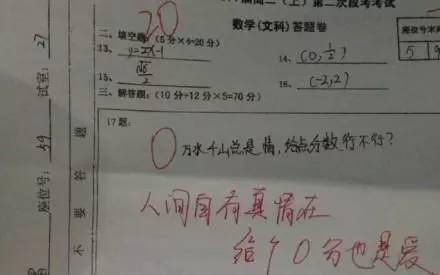 高二(上)第二次段考考试
数学(文科)答题卷
座位号末
5
20
二、填空题:(5分×4=20分)
13、y=2x-1
14、(0,1/2)
15、√6/2
16、(-2,2)
三、解答题:(10分+12分×5=70分)
17题:
0 万水千山总是情,给点分数行不行?
人间自有真情在
给个0分也是爱
试室:27
座位号:59
不要答题